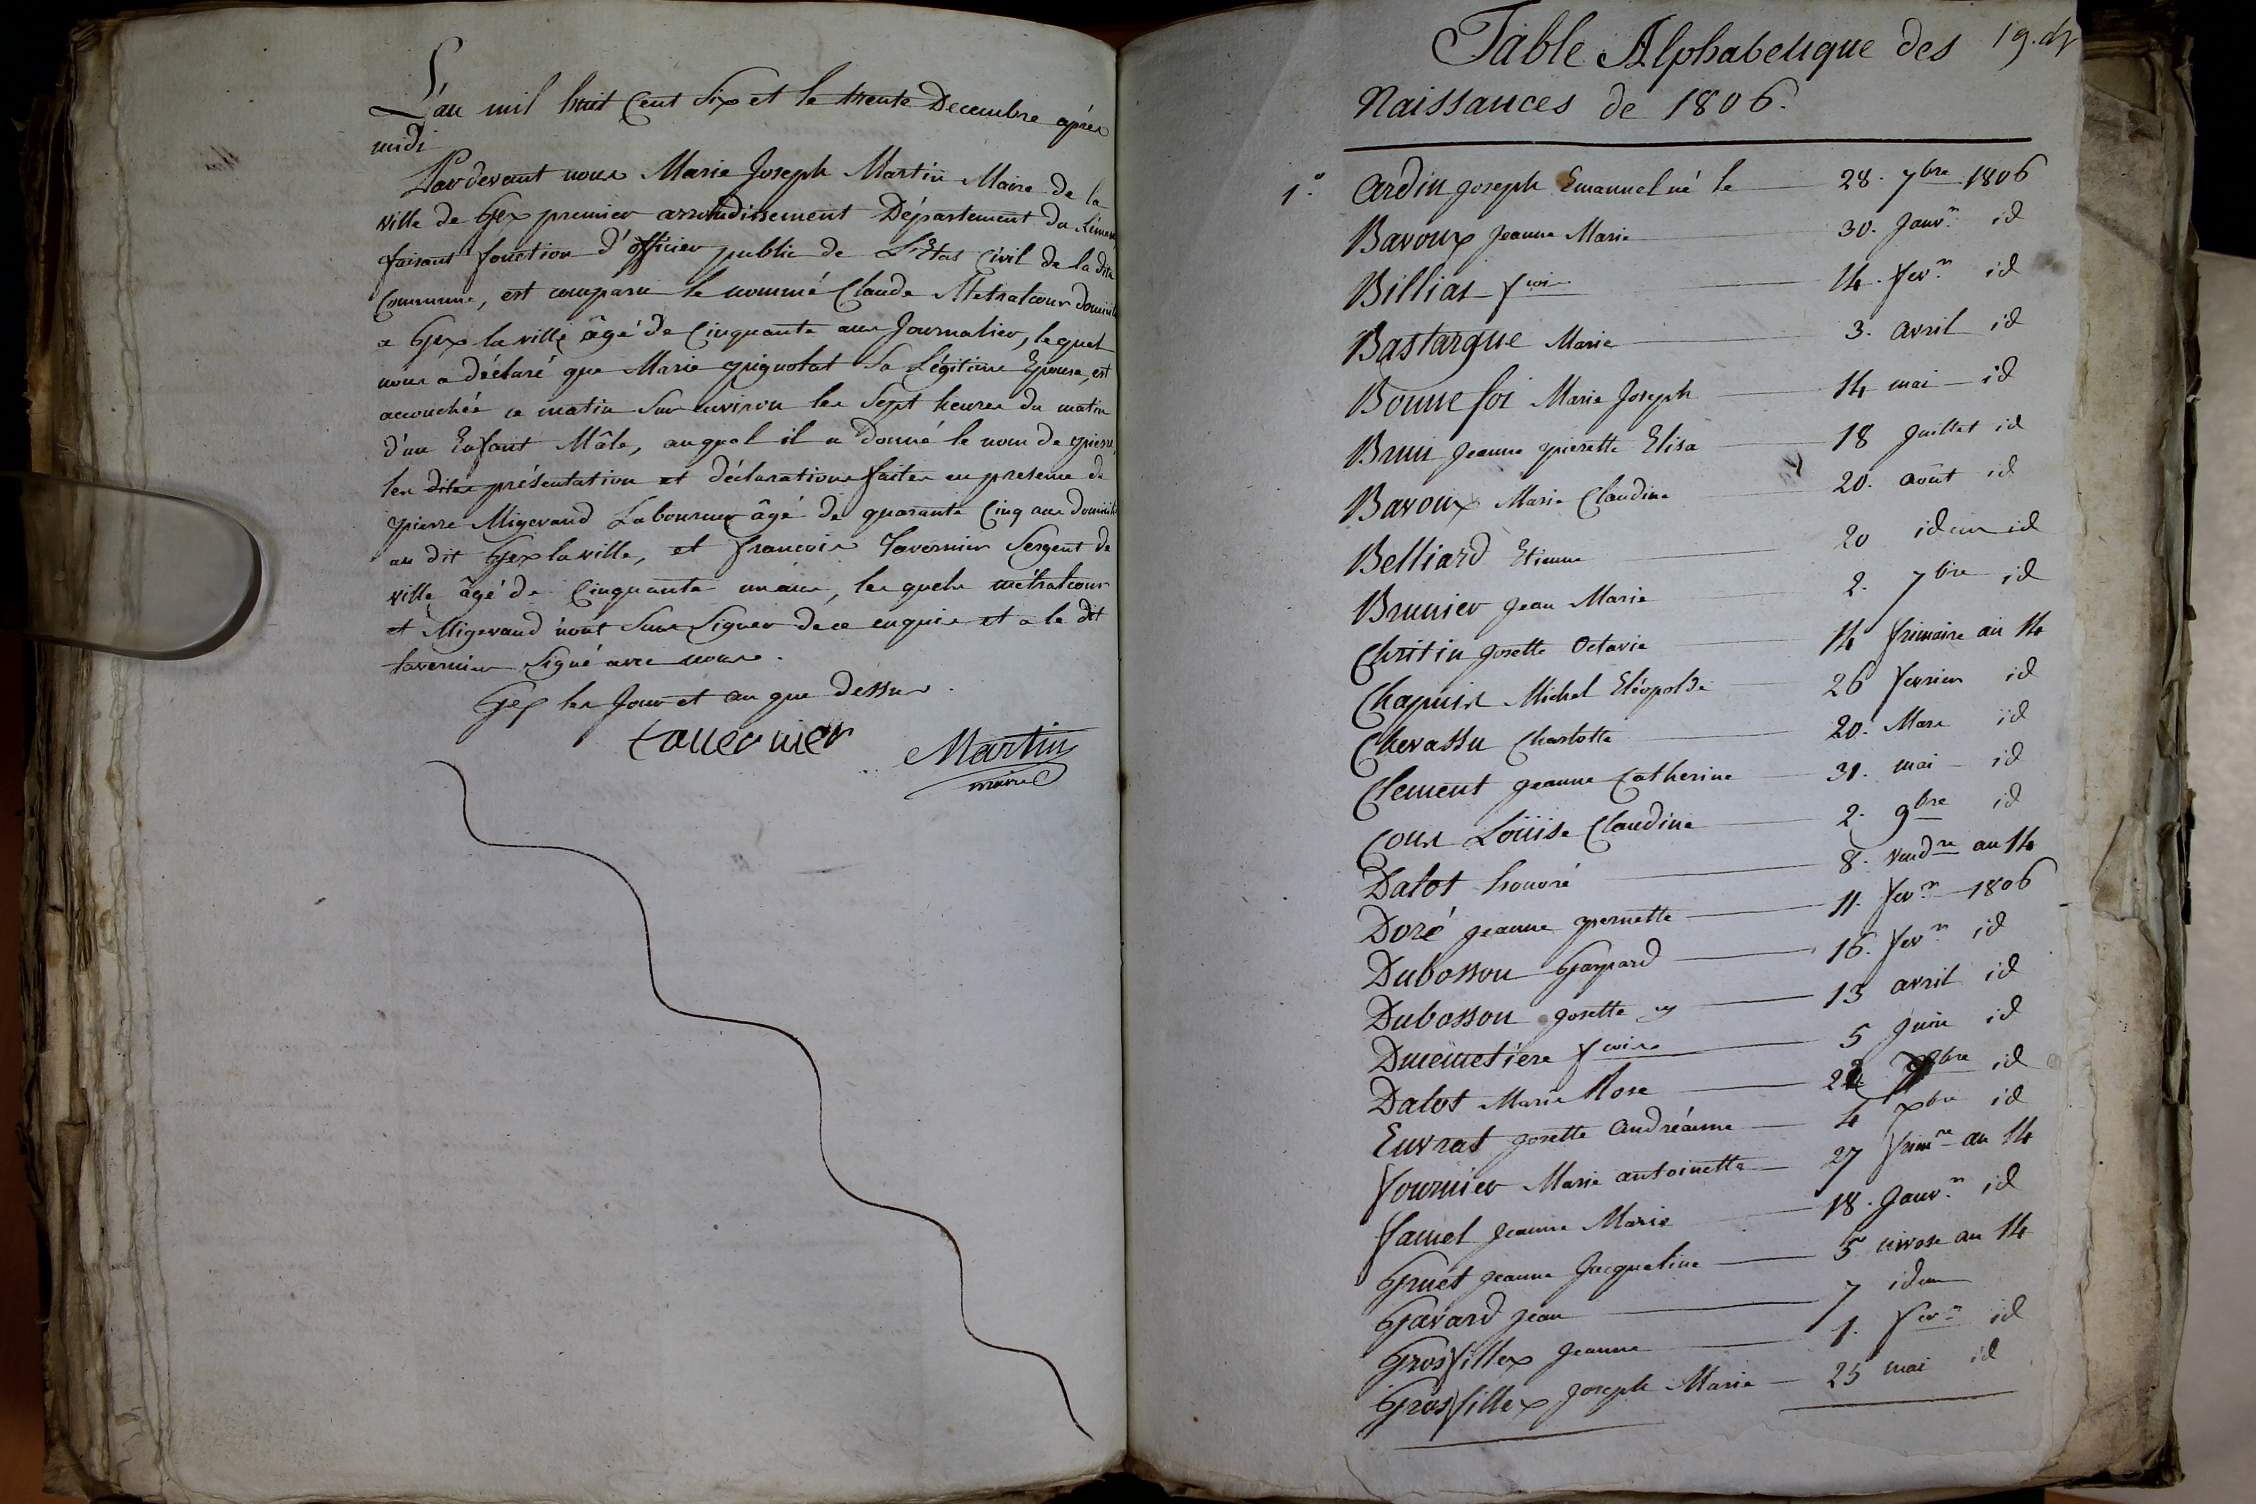 L'an mil huit Cent Six et le trente Decembre après
midi
Pardevant nous Marie Joseph Martin Maire de la
ville de Gex premier arrondissement Département du Léman
faisant fonction d'officier public de L'Etat Civil de la dite
Commune, est comparu le nommé Claude Metralcour domicilié
a Gex la ville âgé de Cinquante ans Journalier, lequel
nous a déclaré que Marie pignolat Sa Légitime Epouse, est
accouchée ce matin Sur environ les Sept heures du matin
d'un Enfant Mâle, auquel il a donné le nom de pierre,
les dites présentation et déclaration faites en presence de
pierre Migerand Laboureur âgé de quarante Cinq ans domicilié
au dit Gex la ville, et francois Tavernier Sergent de
ville âgé de Cinquante un ans, les quels métralcour
et Migerand n'ont Sus Signer de ce enquis et a le dit
tavernier Signé avec nous.
Gex les Jour et an que dessus.
tavernier Martin
maire
Table Alphabetique des
Naissances de 1806.
1º. Ardin Joseph Emanuel né le 28. 7bre 1806
Bavoux Jeanne Marie 30. Janvr. id
Billiat fcois 14. fevr. id
Bastarque Marie 3. avril id
Bonnefoi Marie Joseph 14 mai id
Brun Jeanne pierrette Elisa 18 Juillet id
Bavoux Marie Claudine 20. août id
Belliard Etienne 20 idem id
Brunier Jean Marie 2. 7bre id
Christin Josette Octavie 14 frimaire an 14
Chapuis Michel Eléopolde 26 fevrier id
Chevassu Charlotte 20. Mars id
Clement Jeanne Catherine 31. mai id
Cour Loüise Claudine 2. 9bre id
Dalot honoré 8. Vendre an 14
Doré Jeanne pernette 11. fevr. 1806
Dubosson Gaspard 16. fevr. id
Dubosson Josette 13 avril id
Dumemetiere fcoise 5 Juin id
Dalot Marie Rose bre id
Euvrat Josette Andréanne 4 xbre id
fournier Marie antoinette 27 frimre an 14
famel Jeanne Marie 18. Janvr. id
Gruét Jeanne Jacqueline 5 nivose an 14
Gavard Jean 7 idem
Grosfillex Jeanne 1. fevr. id
Grosfillex Joseph Marie 25 mai id